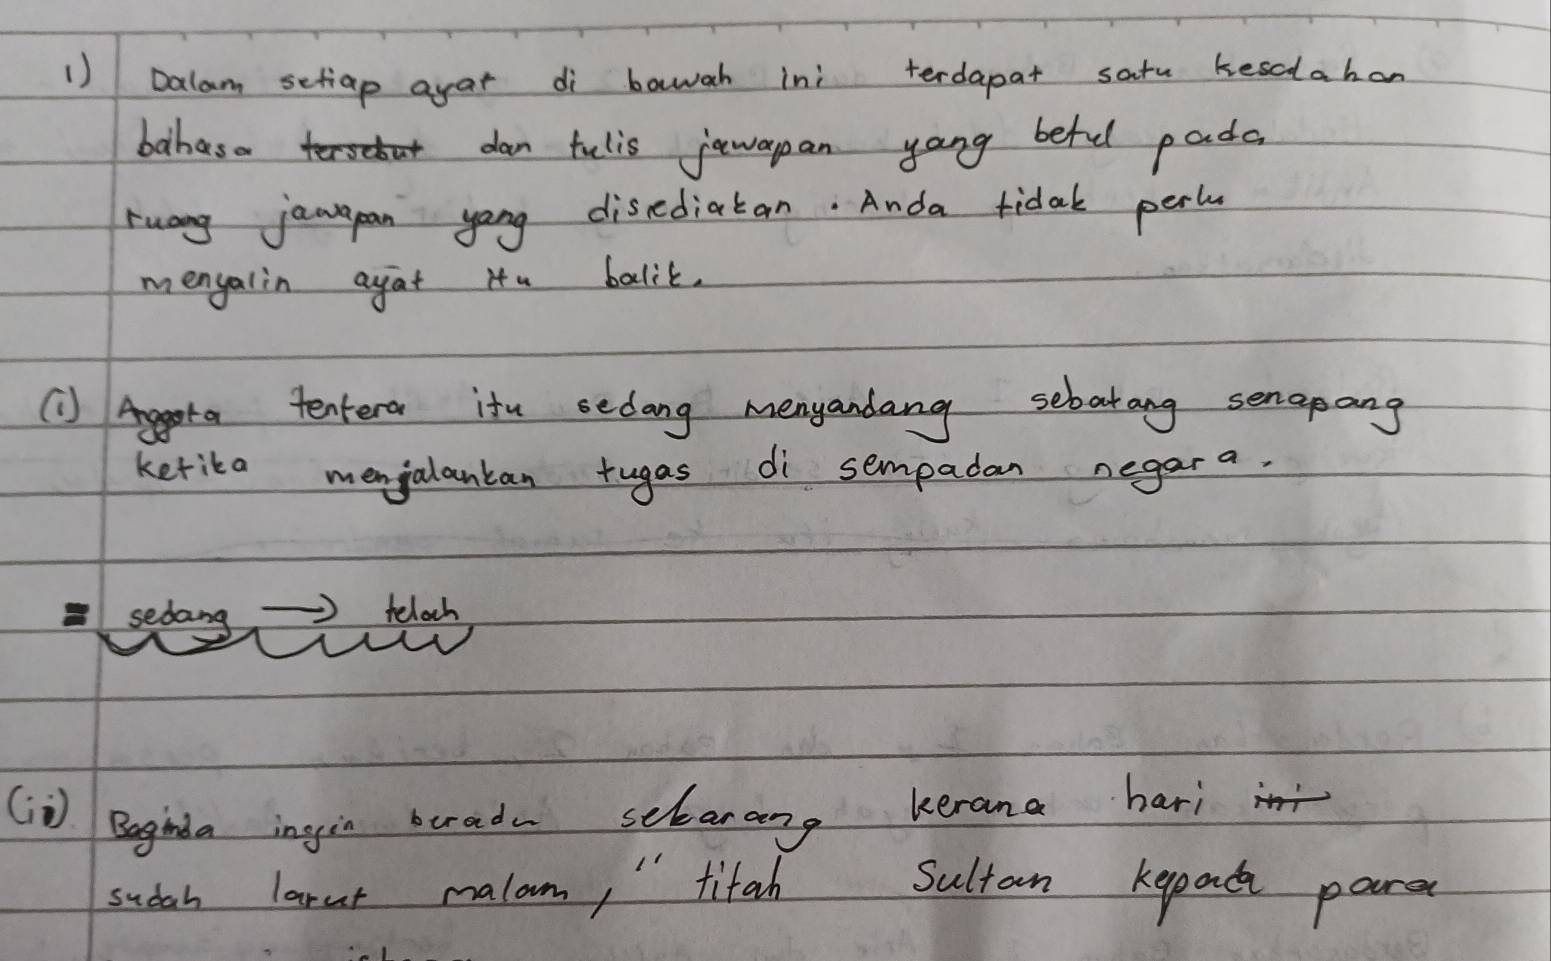 1) Dalam setiap ayat di bawah ini terdapat satu kesalahan
bahasa tersebut dan tulis jawapan yang betul pada
ruang jawapan yang disediakan. Anda tidak perlu
menyalin ayat itu balik.
(i) Anggota tentera itu sedang menyandang sebatang senapang
ketika menjalankan tugas di sempadan negara.
= sedang → telah
(ii) Baginda ingin beradu sekarang kerana hari ini
sudah larut malam," titah Sultan kepada para